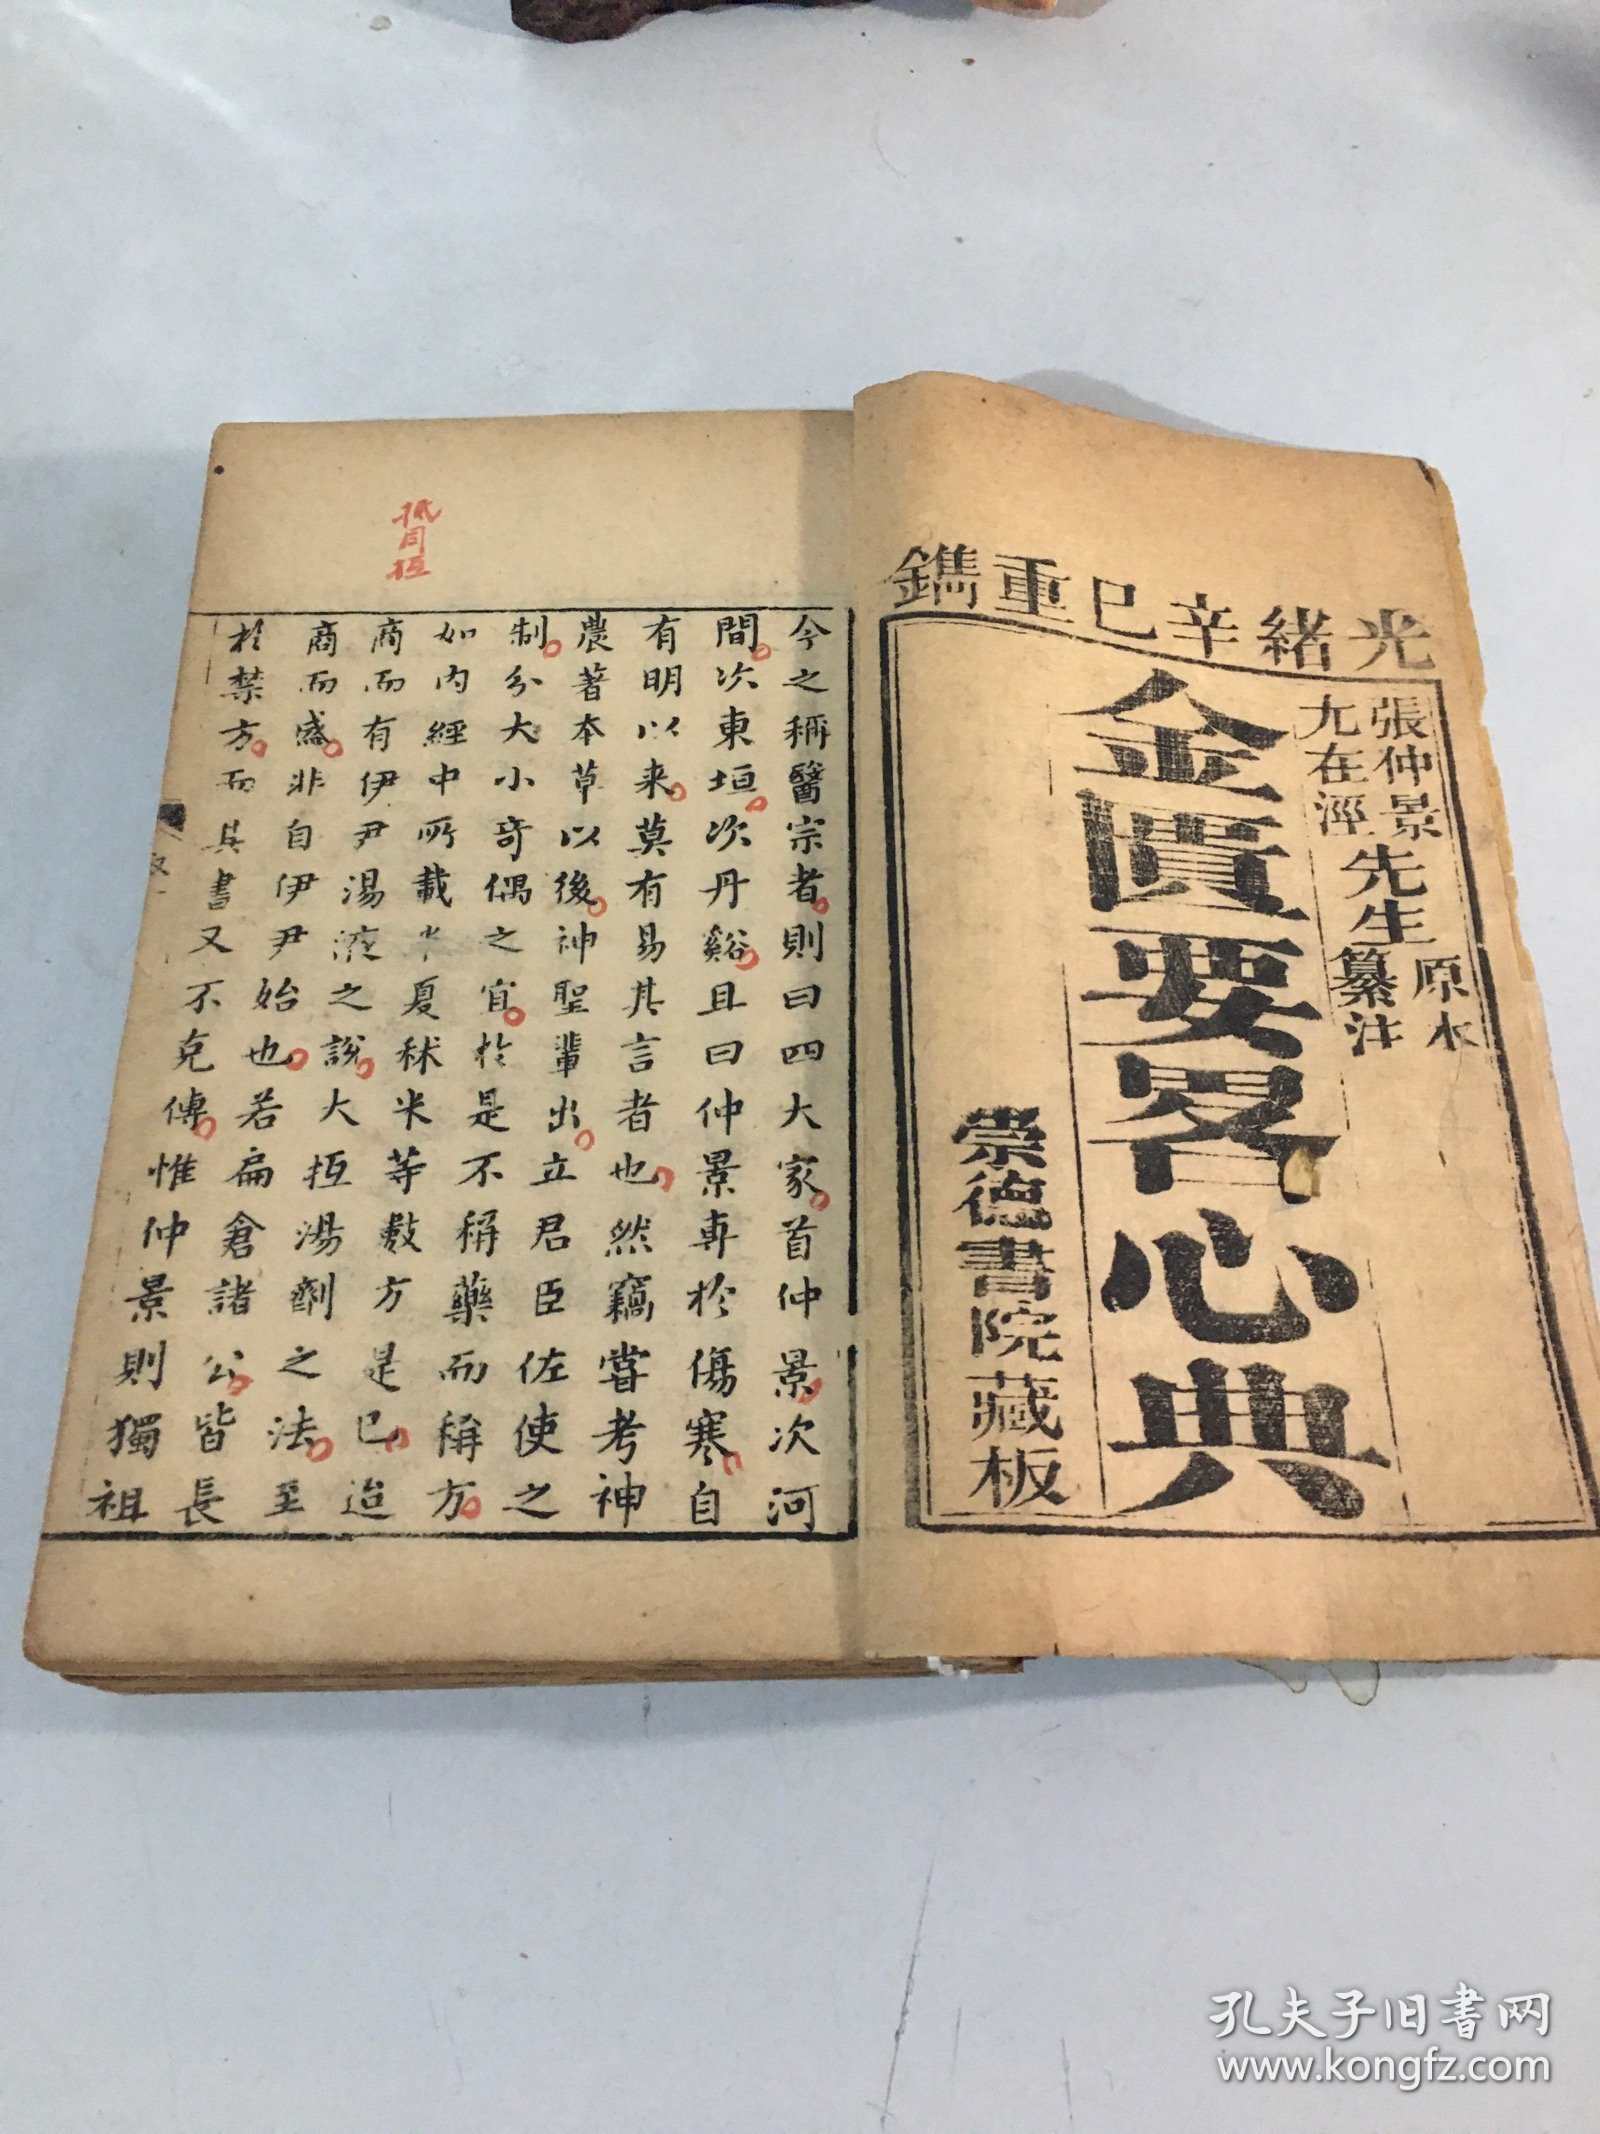 光緒辛巳重鐫
張仲景先生原本
尤在涇先生纂注
金匱要畧心典
崇德書院藏板
今之稱醫宗者則曰四大家首仲景次河
間次東垣次丹谿且曰仲景専於傷寒自
有明以来莫有易其言者也然竊嘗考神
農著本草以後神聖輩出立君臣佐使之
制分大小竒偶之宜於是不稱藥而稱方
如内經中所載半夏秫米等數方是已迨
商而有伊尹湯液之說大抵湯劑之法至
商而盛非自伊尹始也若扁倉諸公皆長
於禁方而其書又不克傳惟仲景則獨祖
孔夫子旧书网
www.kongfz.com